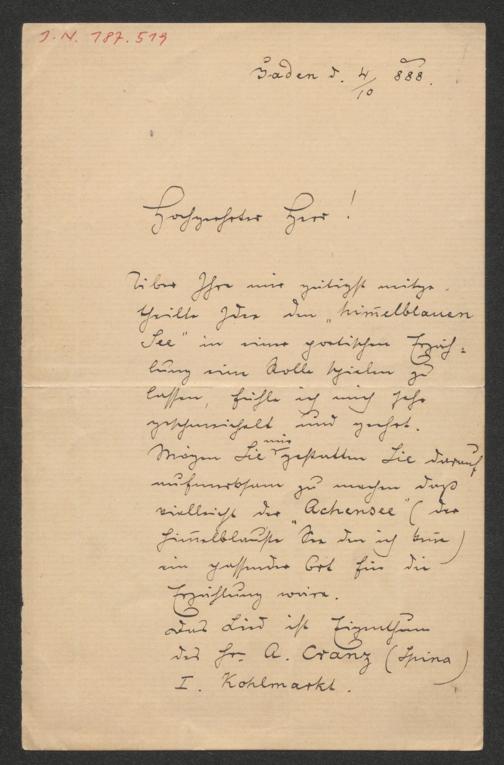 I. N. 187.519
Baden d. 4/10 888.
Hochgeehrter Herr!
Über Ihre mir gütigst mitge-
theilte Idee den „himelblauen
See" in einer poetischen Erzäh-
lung eine Rolle spielen zu
lassen, fühle ich mich sehr
geschmeichelt und geehrt.
Mögen Sie mir gestatten Sie darauf
aufmerksam zu machen daß
vielleicht der „Achensee" (der
himelblauste See den ich kene)
ein passender Ort für die
Erzählung wäre.
Das Lied ist Eigenthum
des Hr. A. Cranz (Spina)
I. Kohlmarkt.